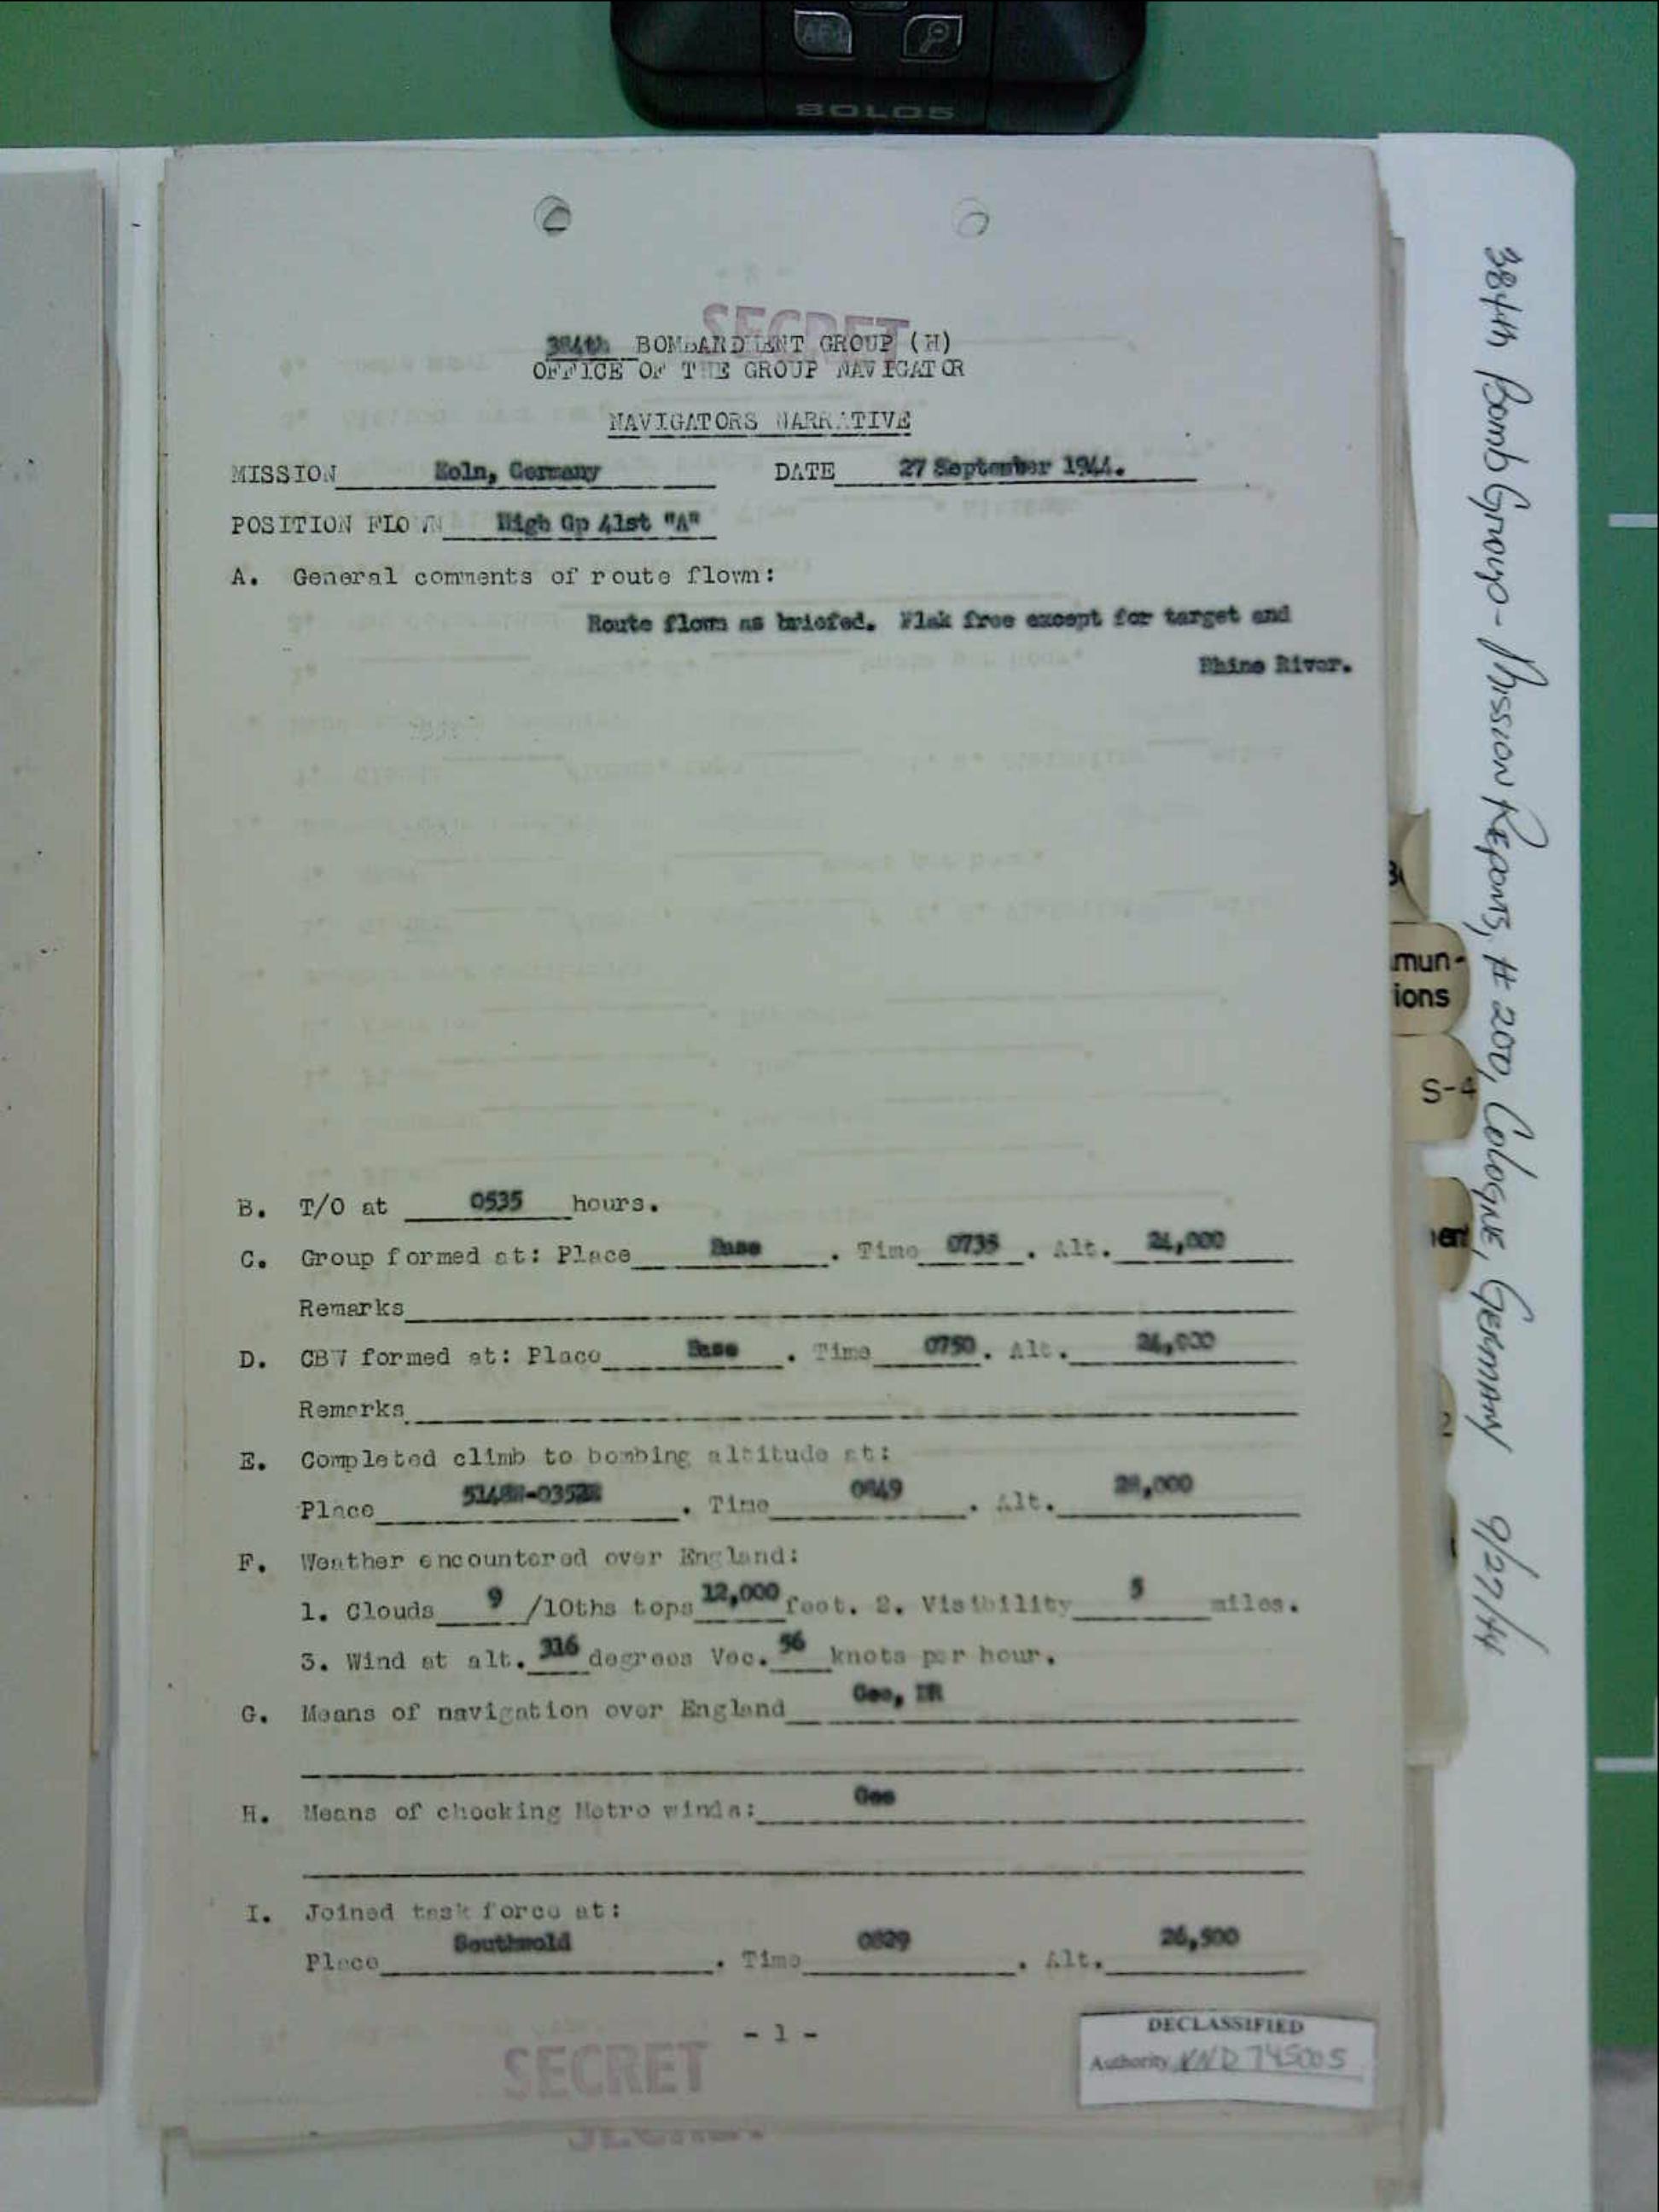 AF-L
SOLO5
SECRET
384th BOMBARDMENT GROUP (H)
OFFICE OF THE GROUP NAVIGATOR
NAVIGATORS NARRATIVE
MISSION Koln, Germany DATE 27 September 1944.
POSITION FLOWN High Gp 41st "A"
A. General comments of route flown:
Route flown as briefed. Flak free except for target and
Rhine River.
B. T/O at 0535 hours.
C. Group formed at: Place Base . Time 0735 . Alt.
Remarks
D. CBW formed at: Place Base . Time 0750 . Alt.
Remarks
E. Completed climb to bombing altitude at:
Place . Time 0849 . Alt. 28,000
F. Weather encountered over England:
1. Clouds 9 /10ths tops 12,000 feet. 2. Visibility 5 miles.
3. Wind at alt. 316 degrees Vec. 56 knots per hour.
G. Means of navigation over England Gee, DR
H. Means of checking Metro winds: Gee
I. Joined task force at:
Place Southwold . Time 0829 . Alt. 26,500
- 1 -
SECRET
DECLASSIFIED
Authority NND 745005
384th Bomb Group - Mission Reports, # 200, Cologne, Germany 9/27/44
mun-
ions
S-4